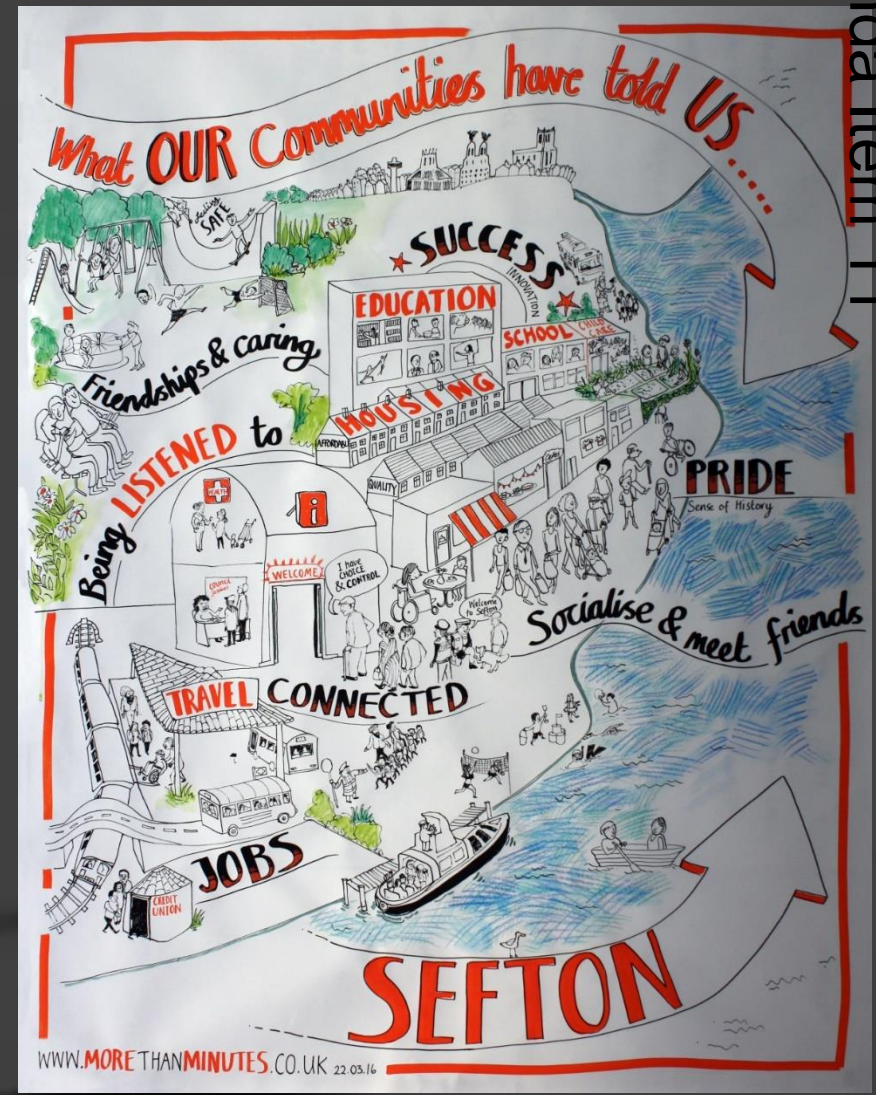 What OUR Communities have told US.....
feeling
SAFE
SUCCESS
INNOVATION
EDUCATION
SCHOOL
CHILD
CARE
Friendships & caring
HOUSING
AFFORDABLE
Being LISTENED to
QUALITY
HEALTH
i
PRIDE
Sense of History
WELCOME
I have
CHOICE
& CONTROL
COUNCIL
Welcome
to Sefton
Socialise & meet friends
TRAVEL CONNECTED
JOBS
CREDIT
UNION
SEFTON
WWW.MORETHANMINUTES.CO.UK 22.03.16